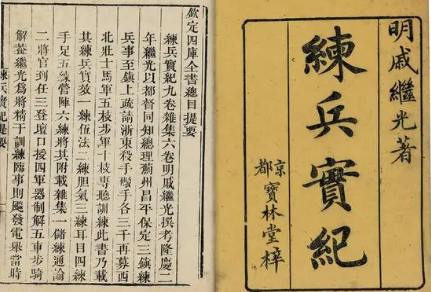 明戚繼光著
練兵實紀
京都寶林堂梓
欽定四庫全書總目提要
練兵實紀九卷雜集六卷明戚繼光撰考隆慶二
年繼光以都督同知總理薊州昌平保定三鎮練
兵事至鎮上疏請浙東殺手礮手各三千再募西
北壯士馬軍五枝步軍十枝專聽訓練此書乃載
其練兵實效一練伍法二練胆氣三練耳目四練
手足五練營陣六練將其附載雜集一儲練通論
二將官到任三登壇口授四軍器制解五車步騎
解葢繼光爲將精于訓練臨事則飈發電舉當時
練兵實紀提要